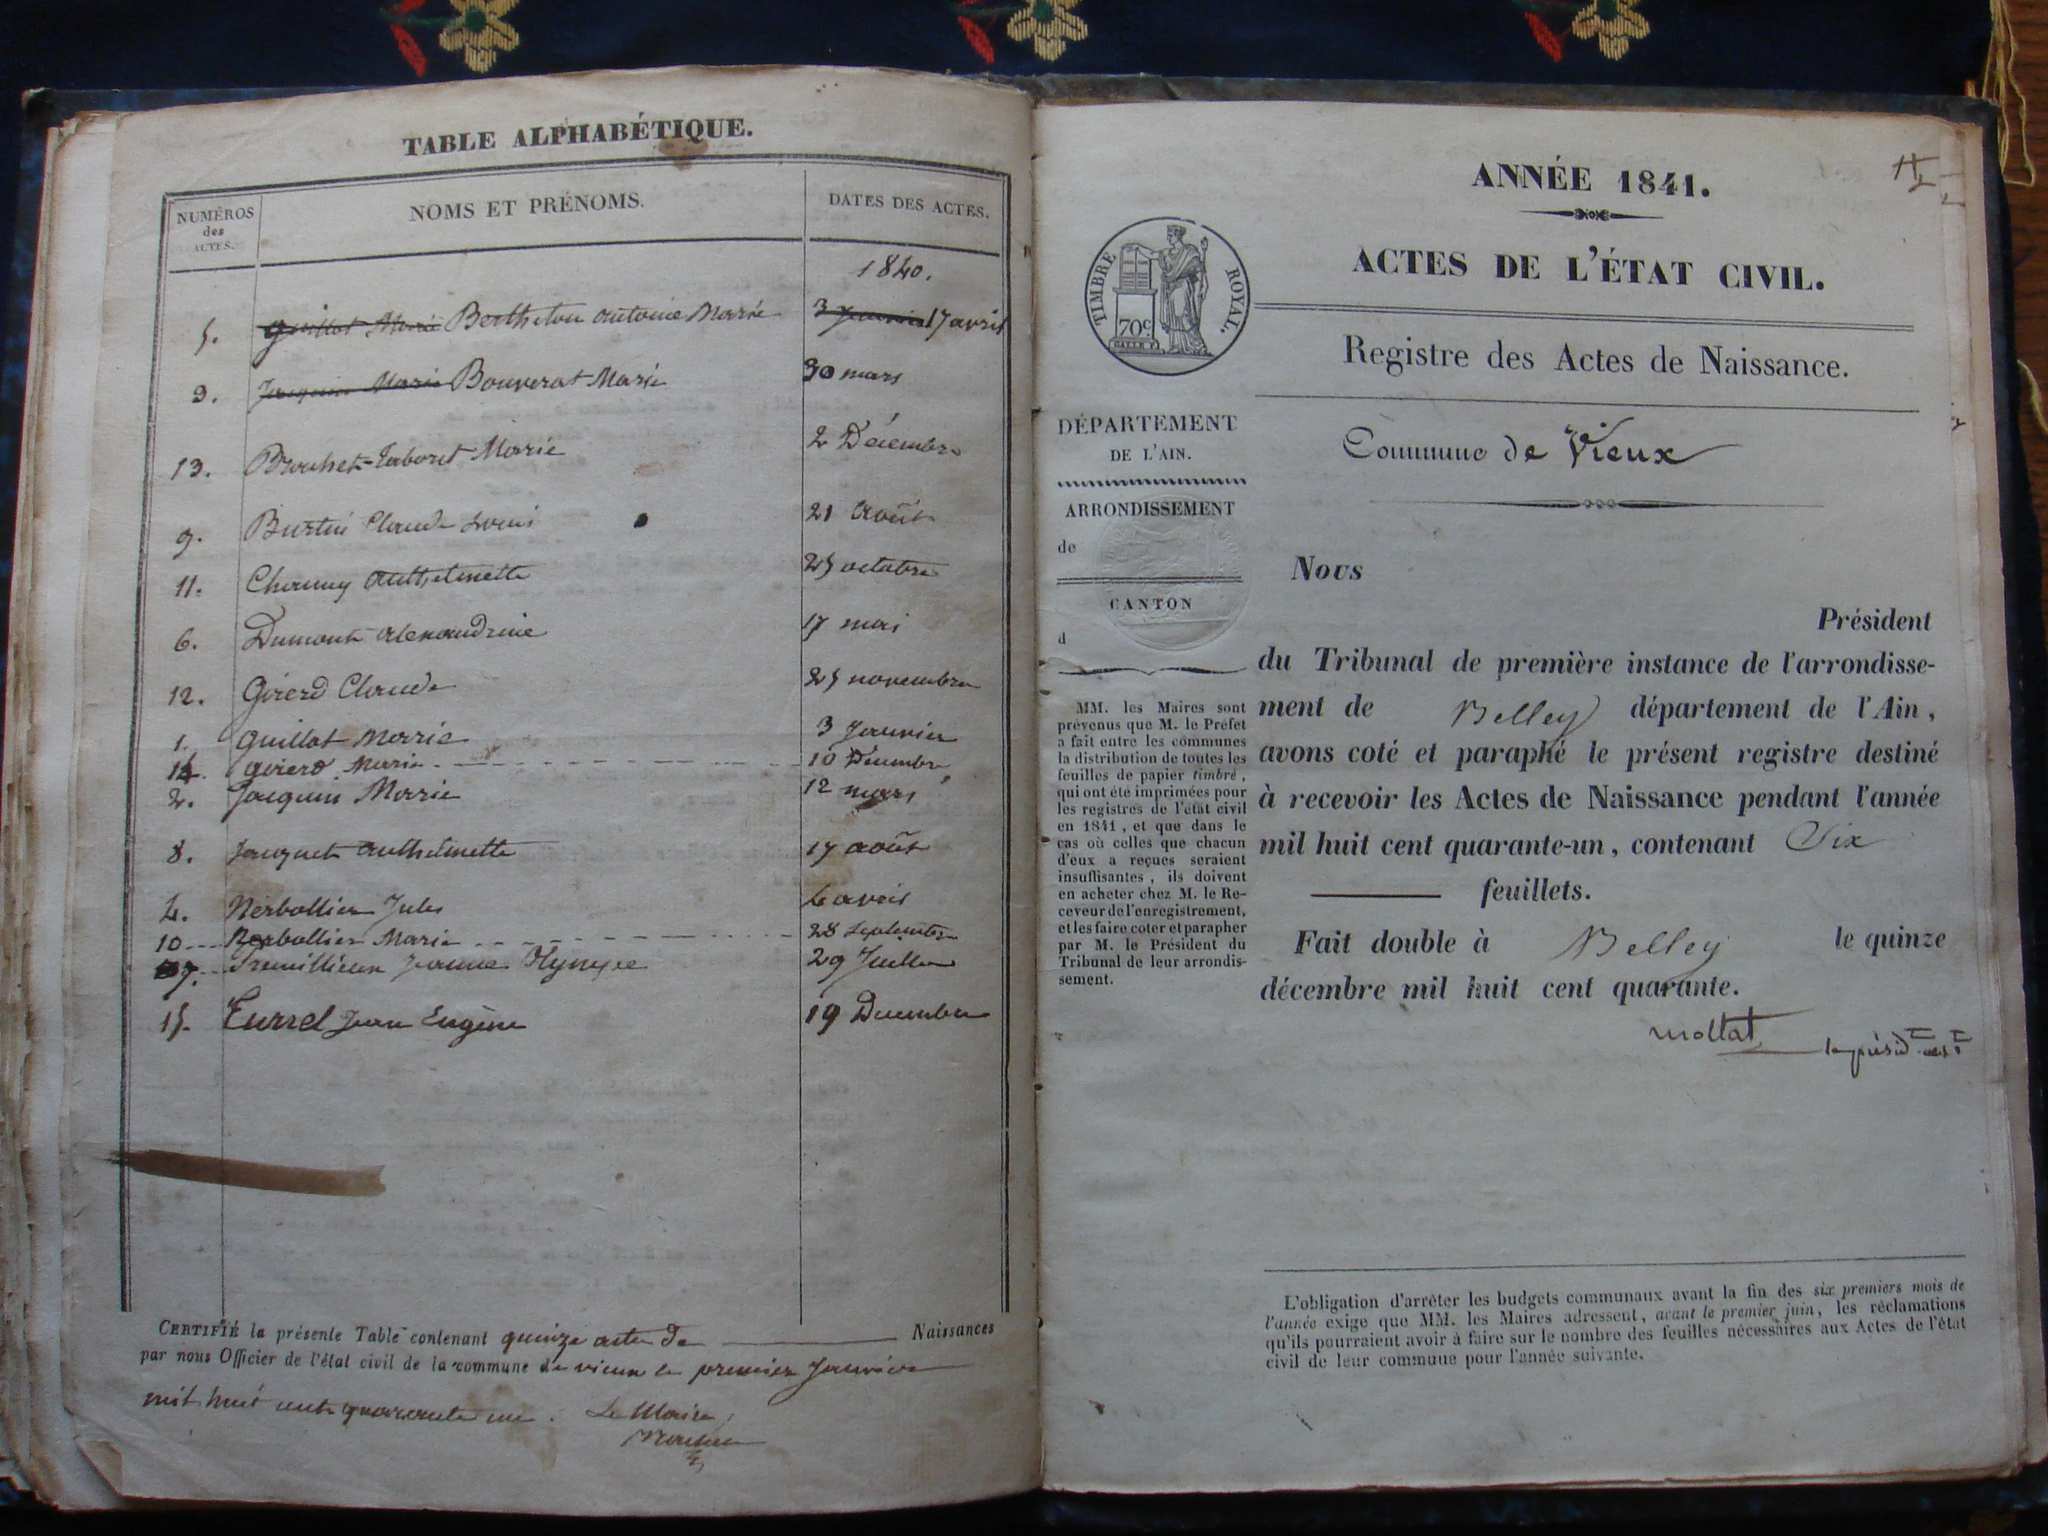 TABLE ALPHABÉTIQUE.
NUMÉROS des ACTES. NOMS ET PRÉNOMS. DATES DES ACTES.
1840.
5. Guillot Marie Bertheton antoine Marie 3 Janvier 17 avril
3. Jacquin Marie Bouverat Marie 30 mars
13. Brochet-Taboret Marie 2 Décembre
9. Burtin Claude Louis 21 août
11. Charvey Anthelmette 25 octobre
6. Dumont alexandrine 17 mai
12. Girerd Claude 25 novembre
1. Guillot Marie 3 Janvier
14. Girerd Marie 10 Décembre
2. Jacquin Marie 12 mars
8. Jacquet anthelmette 17 août
4. Nerbollier Jules 4 avril
10 Berbollier Marie 28 Septembre
7. Jeanne Olympe 29 Juillet
15. Turrel Jean Eugène 19 Decembre
CERTIFIÉ la présente Table contenant quinze actes de Naissances
par nous Officier de l'état civil de la commune de vieux le premier Janvier
mil huit cent quarante un. Le Maire,
ANNÉE 1841.
ACTES DE L'ÉTAT CIVIL.
TIMBRE ROYAL.
70c
Registre des Actes de Naissance.
Commune de Vieux
DÉPARTEMENT
DE L'AIN.
ARRONDISSEMENT
de
CANTON
d
MM. les Maires sont
prévenus que M. le Préfet
a fait entre les communes
la distribution de toutes les
feuilles de papier timbré,
qui ont été imprimées pour
les registres de l'état civil
en 1841, et que dans le
cas où celles que chacun
d'eux a reçues seraient
insuffisantes, ils doivent
en acheter chez M. le Re-
ceveur de l'enregistrement,
et les faire coter et parapher
par M. le Président du
Tribunal de leur arrondis-
sement.
Nous
Président
du Tribunal de première instance de l'arrondisse-
ment de Belley département de l'Ain,
avons coté et paraphé le présent registre destiné
à recevoir les Actes de Naissance pendant l'année
mil huit cent quarante-un, contenant Six
feuillets.
Fait double à Belley le quinze
décembre mil huit cent quarante.
Mottat
L'obligation d'arrêter les budgets communaux avant la fin des six premiers mois de
l'année exige que MM. les Maires adressent, avant le premier juin, les réclamations
qu'ils pourraient avoir à faire sur le nombre des feuilles nécessaires aux Actes de l'état
civil de leur commune pour l'année suivante.